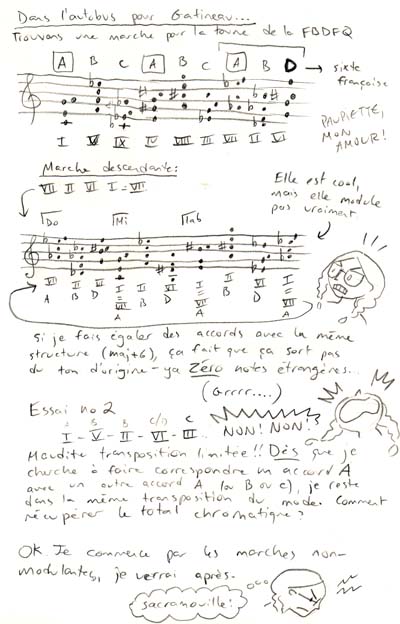 Dans l'autobus pour Gatineau...
Trouvons une marche par la toune de la FBDFQ
A B C A B C A B D → sixte
française
I V IX IV VIII III VII II VI
PAUPIETTE,
MON
AMOUR!
Marche descendante:
VII II VI I = VII
Elle est cool,
mais elle module
pas vraiment
Do Mi Lab
VII II VI I = VII II VI I = VII II VI I = VII
A B D A B D A B D A
Si je fais égaler des accords avec la même
structure (maj+6), ça fait que ça sort pas
du ton d'origine - ya Zéro notes étrangères...
(Grrrr....)
Essai no 2
A B B C/D C
I - V - II - VI - III...
NON! NON!
Maudite transposition limitée!! Dès que je
cherche à faire correspondre un accord A
avec un autre accord A (ou B ou C), je reste
dans la même transposition du mode. Comment
récupérer le total chromatique?
OK. Je commence par les marches non-
modulantes, je verrai après.
sacranouille!